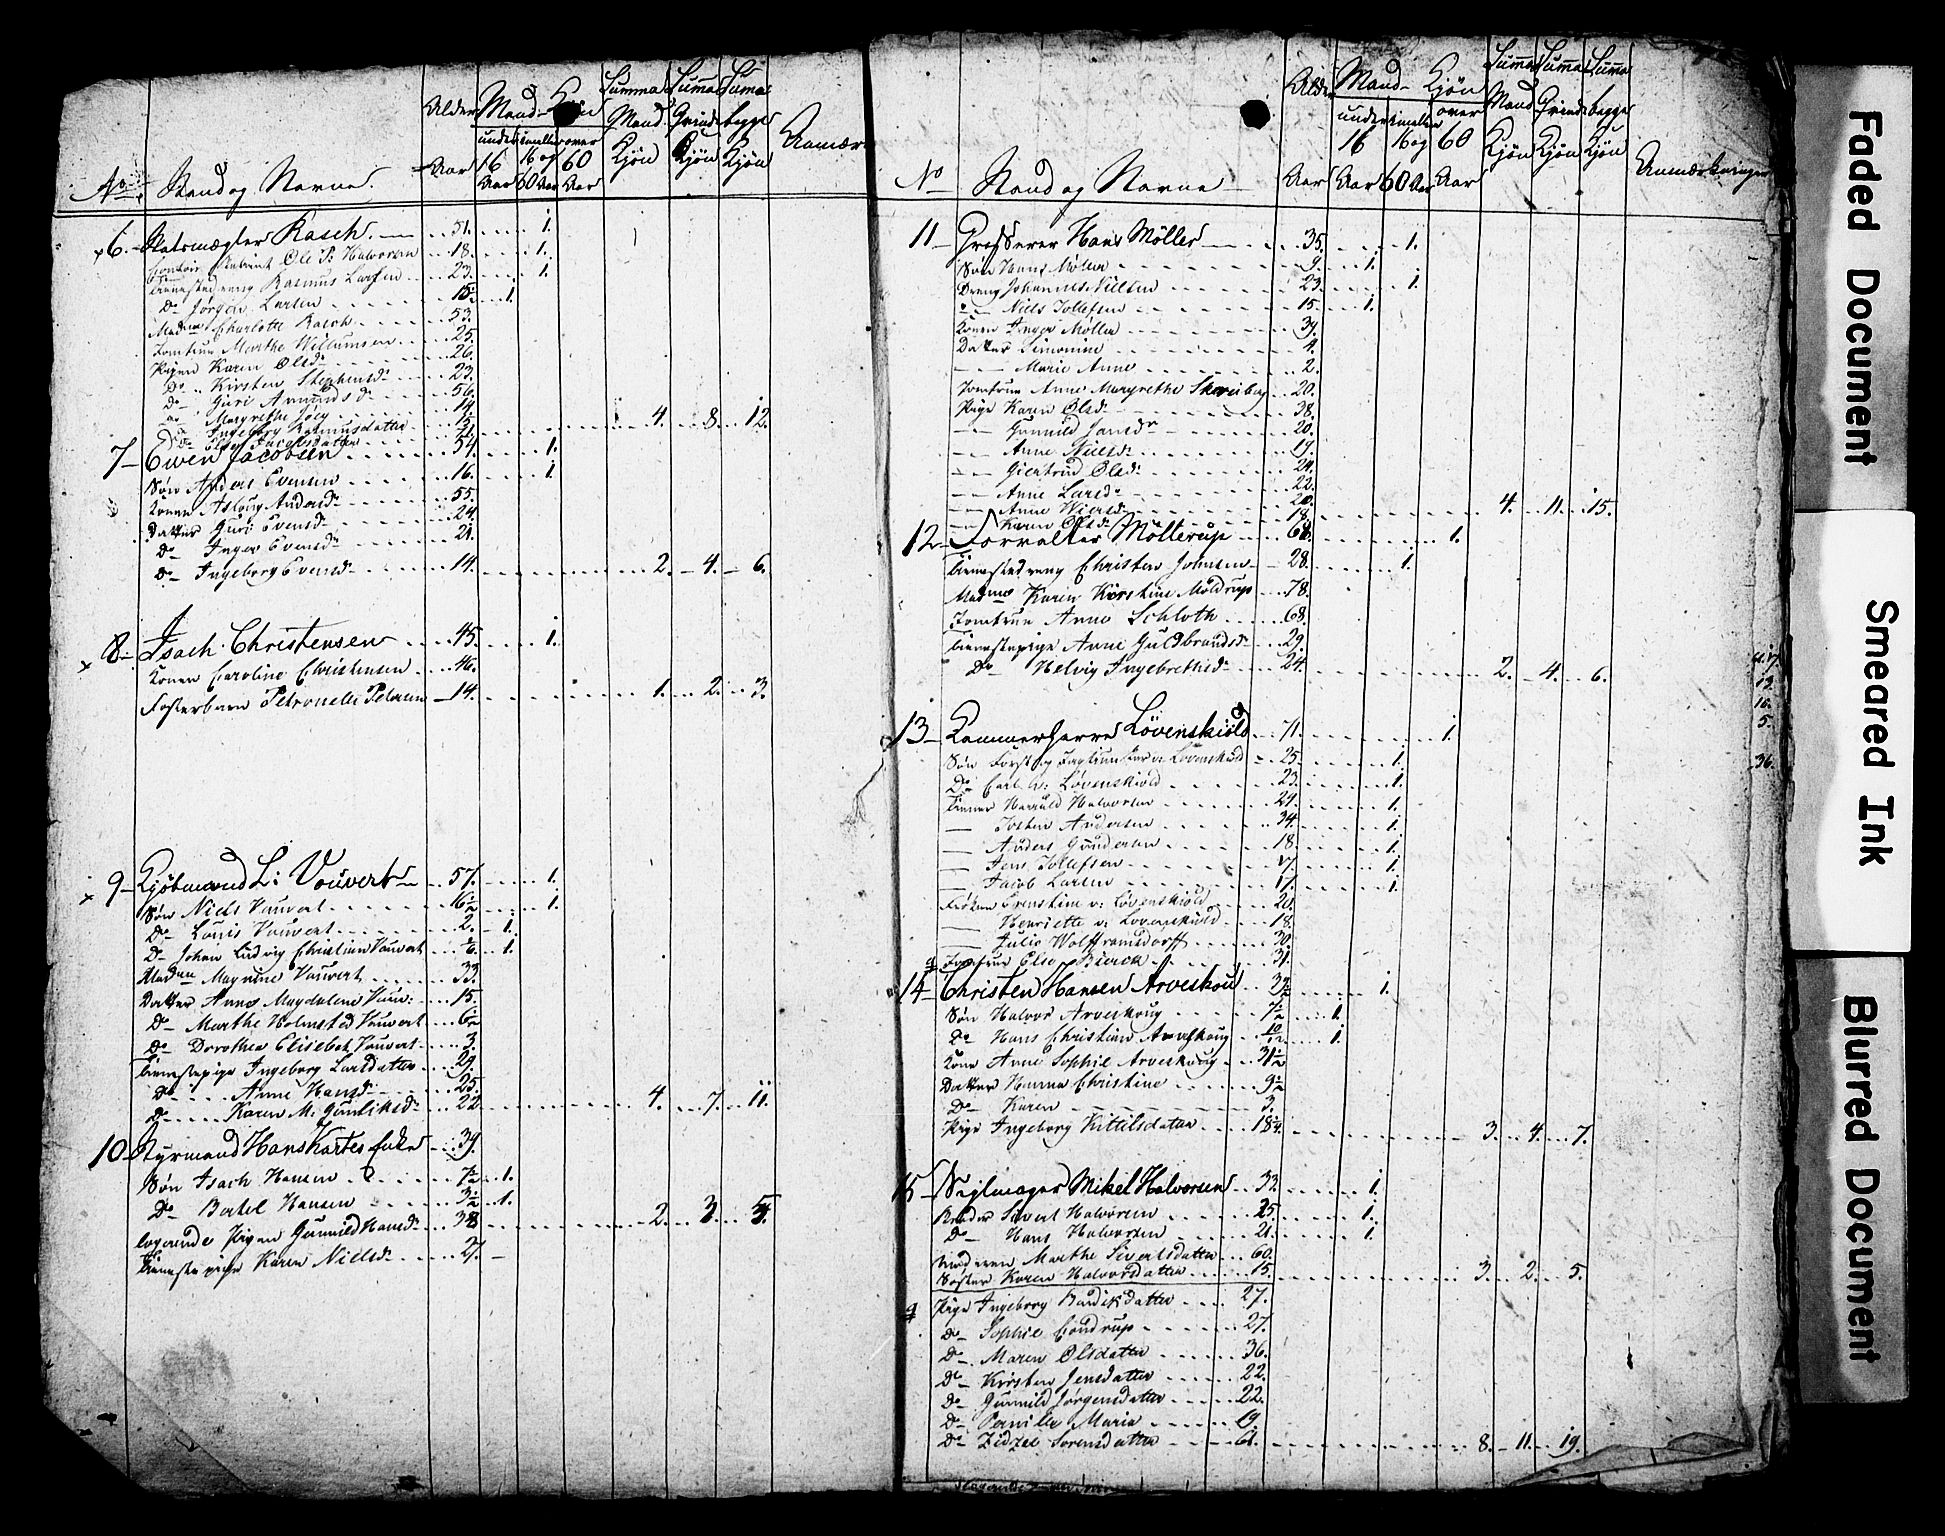 No. Stand og Navne. Alder Aar Mand-Kjøn under 16 Aar imellem 16 og 60 Aar over 60 Aar Summa Mand. Kjøn Summa Qvinde Kjøn Suma begge Kjøn Anmær
x 6. Statsmægler Rasch. 51. 1.
Contoir Betient Ole P: Halvorsen 18. 1.
Tienestedreng Rasmus Larsen 23. 1.
Do Jørgen Larsen 15 1/2 1.
Madme Charlotte Rasch 53.
Jomfrue Marthe Willumsen 25.
Pigen Karen Olsdr 26.
Do Kirsten Stephensdr 23.
Do Guri Amundsdr 56.
Margrethe Joeg 14 4. 8. 12.
Ingeborg Rasmusdatter
Jacobsdatter
7 Even Jacobsen 54. 1.
Søn Anders Evensen 16. 1.
Konen Asloug Andersdr 55.
Datter Guri Evensd 24.
Do Inger Evensdr 21.
Do Ingeborg Evensdr 14. 2. 4. 6.
x 8 Isach Christensen 45. 1.
Konen Caroline Christensen 46.
Fosterbarn Petronelle Petersen 14. 1. 2. 3.
x 9 Kjøbmand L: Vauvert 57. 1.
Søn Niels Vauvert 16 1/2 1.
Do Louis Vauvert 2. 1.
Do Johan Ludvig Christian Vauvert 1/6. 1.
Madme Magrine Vauvert 33.
Datter Anne Magdalene Vauv: 15.
Do Marthe Holmsted Vauvert 6 1/2
Do Dorothea Elisebet Vauvert 3.
Tienestepige Ingeborg Larsdatter 29.
Do Anne Hansdr 25.
Do Karen M. Gunliksdr 22 4. 7. 11.
10 Styrmand Hans Kortes Enke 39.
Søn Isach Hansen 7 1/2 1.
Do Bertel Hansen 3 1/2 1.
logerende Pigen Gunnild Hansdr 38 2. 3. 5.
Tieneste pige Karen Nielsdr 27.
No Stand og Navne Alder Aar Mand-Kjøn under 16 Aar imellem 16 og 60 Aar over 60 Aar Summa Mand Kjøn Summa Qvinde Kjøn Summa begge Kjøn Anmærkninger
11 Grosserer Hans Møller 35. 1.
Søn Hans Møller 9. 1.
Dreng Johannes Nielsen 23. 1.
Niels Tollefsen 15. 1.
Konen Inger Møller 39.
Datter Simonine 4.
Marie Anne 2.
Jomfrue Anne Margrethe 20.
Pige Karen Olsdr 38.
Gunnild Jansdr 20.
Anne Nielsdr 19.
Giertrud Olsdr 24.
Anne Larsdr 22.
Anne 20. 4. 11. 15.
Karen Olsdr 18.
12 Forvalter Møllerup 68. 1.
Tienestedreng Christen Johnsen 28. 1.
Madme Karen Kirstine Møldrup 78.
Jomfrue Anne Schloth 68.
Tienestepige Anne Guldbrandsdr 29.
Do Helvig Ingebrethsdr 24. 2. 4. 6.
13 Kammerherre Løvenskiold 71. 1.
Søn Forst og Jagtjunker v: Løvenskiold 25. 1.
Do Carl v: Løvenskiold 23. 1.
Tiener Harald Halvorsen 24. 1.
Josten Andersen 34. 1.
Anders Gunderson 18. 1.
Jens Tollefsen 17. 1.
Jacob Larsen 17. 1.
Frøken Ernstine v: Løvenskiold 20.
Henriette v: Løvenskiold 18.
Julie Wolfframsdorff 30.
Jomfrue Else Bierck 31.
14 Christen Hansen Arveskou 32 1/2 1.
Søn Halvor Arveskoug 7 1/2 1.
Do Hans Christian Arveskoug 10/12 1.
Kone Anne Sophie Arveskoug 31 1/2
Datter Hanna Christine 9 1/2
Do Karen 3.
Pige Ingeborg Kittilsdatter 18 1/4. 3. 4. 7.
15 Seglmager Mikel Halvorsen 33. 1.
Broder Sivert Halvorsen 25 1.
Do Hans Halvorsen 21. 1.
Moderen Marthe Sivertsdatter 60.
Søster Karen Halvorsdatter 15. 3. 2. 5.
Pige Ingeborg 27.
Do Sophie Condrup 27.
Do Maren Olsdatter 36.
Do Kirsten Jensdatter 22.
Do Gunnild Jørgensdatter 22.
Do Pernille Maria 19.
Do Zidzel Sørensdatter 61. 8. 11. 19.
Faded Document
Smeared Ink
Blurred Document